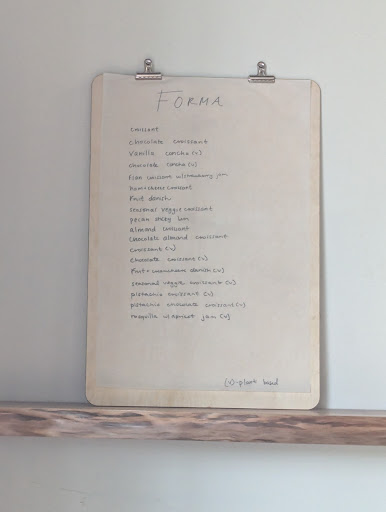 FORMA
croissant
chocolate croissant
vanilla concha (v)
chocolate concha (v)
flan croissant w/strawberry jam
ham + cheese croissant
fruit danish
seasonal veggie croissant
pecan sticky bun
almond croissant
chocolate almond croissant
croissant (v)
chocolate croissant (v)
fruit + danish (v)
seasonal veggie croissant (v)
pistachio croissant (v)
pistachio chocolate croissant (v)
w/ apricot jam (v)
(v) - plant based